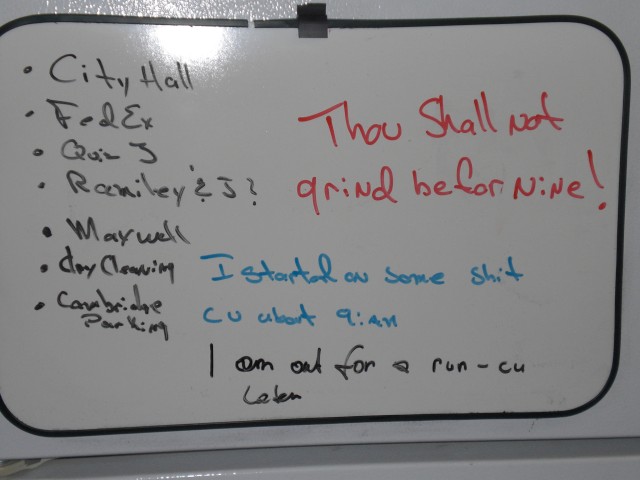 • City Hall
• FedEx
• Quiz J
• & J?
• Maxwell
• dry Cleaning
• Cambridge
Parking
Thou Shall not
grind befor NiNe!
I started on some shit
cu about
I am out for a run - cu
Later